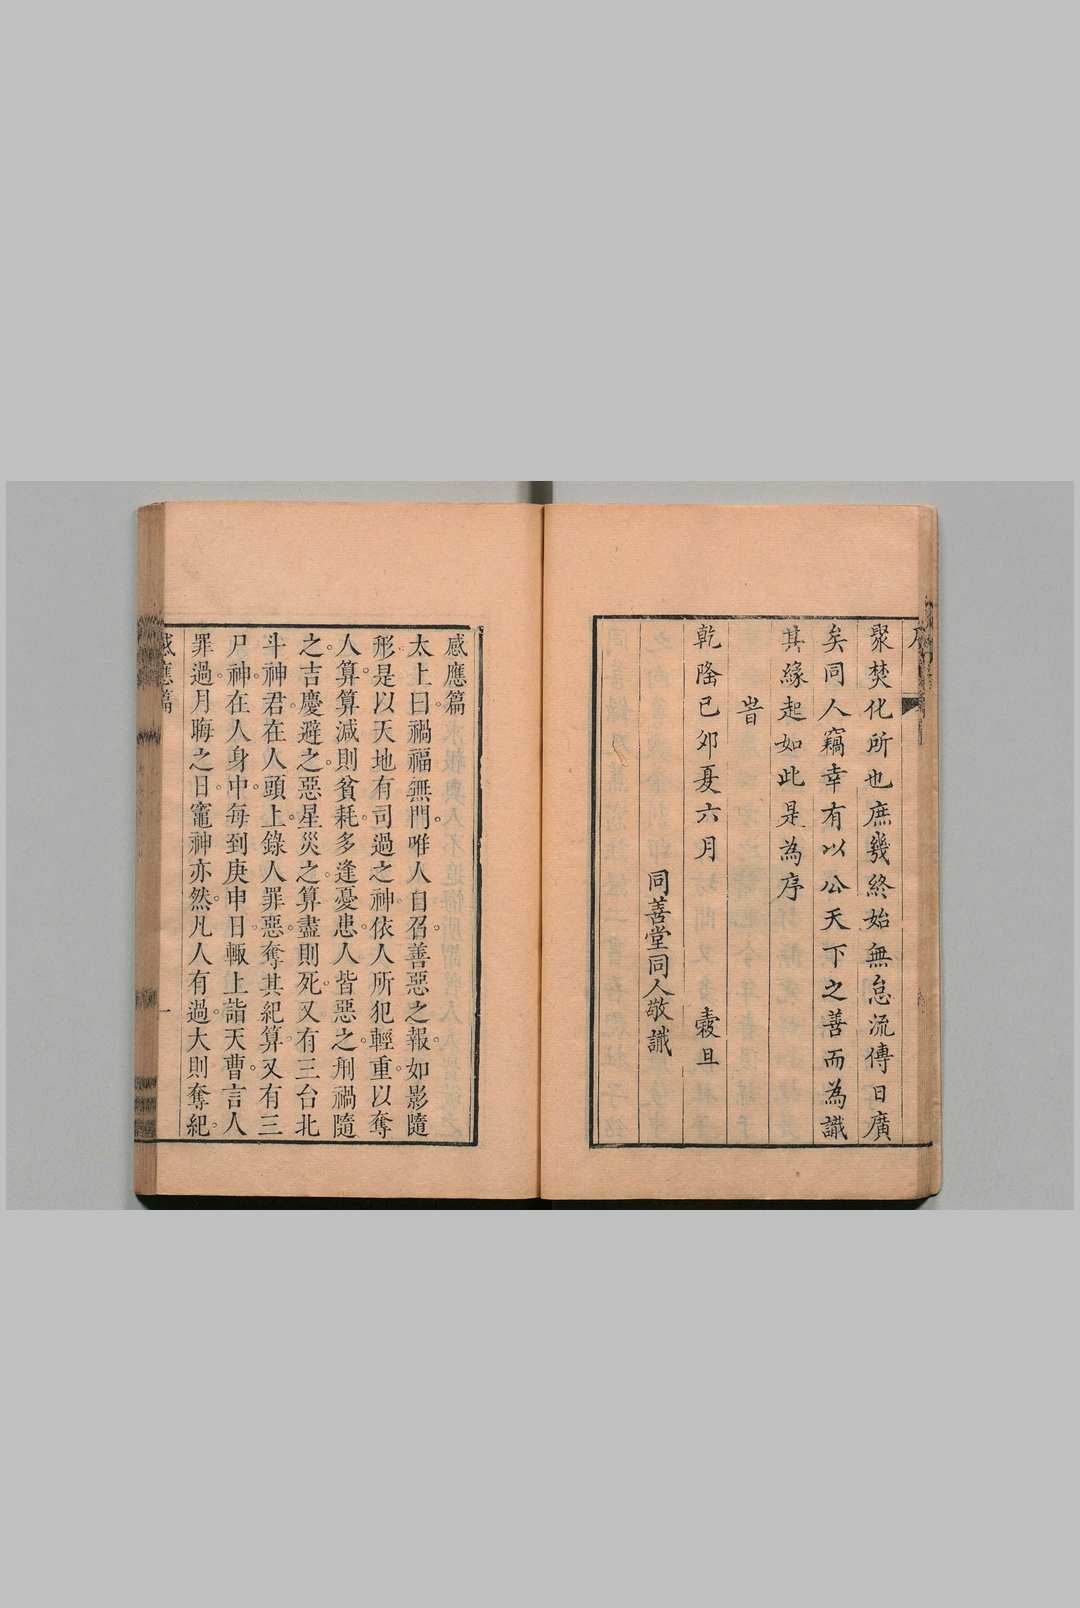 聚焚化所也庶幾終始無怠流傳日廣
矣同人竊幸有以公天下之善而為識
其緣起如此是為序
旹
乾隆己卯夏六月 穀旦
同善堂同人敬識
感應篇
太上曰禍福無門唯人自召善惡之報如影隨
形是以天地有司過之神依人所犯輕重以奪
人算算減則貧耗多逢憂患人皆惡之刑禍隨
之吉慶避之惡星災之算盡則死又有三台北
斗神君在人頭上錄人罪惡奪其紀算又有三
尸神在人身中每到庚申日輙上詣天曹言人
罪過月晦之日竈神亦然凡人有過大則奪紀
感應篇 一